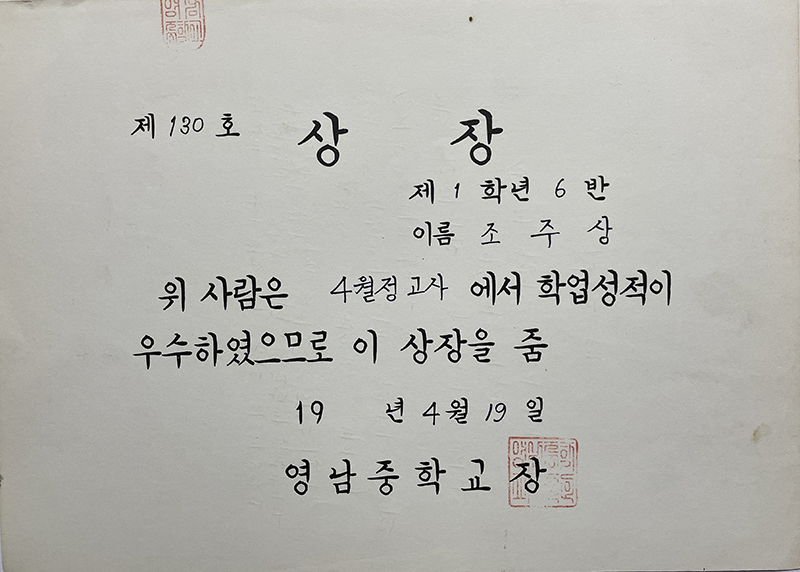 제 130 호 상 장
제 1 학년 6 반
이름 조 주 상
위 사람은 4월정고사 에서 학업성적이
우수하였으므로 이 상장을 줌
19 년 4월 19일
영남중학교장